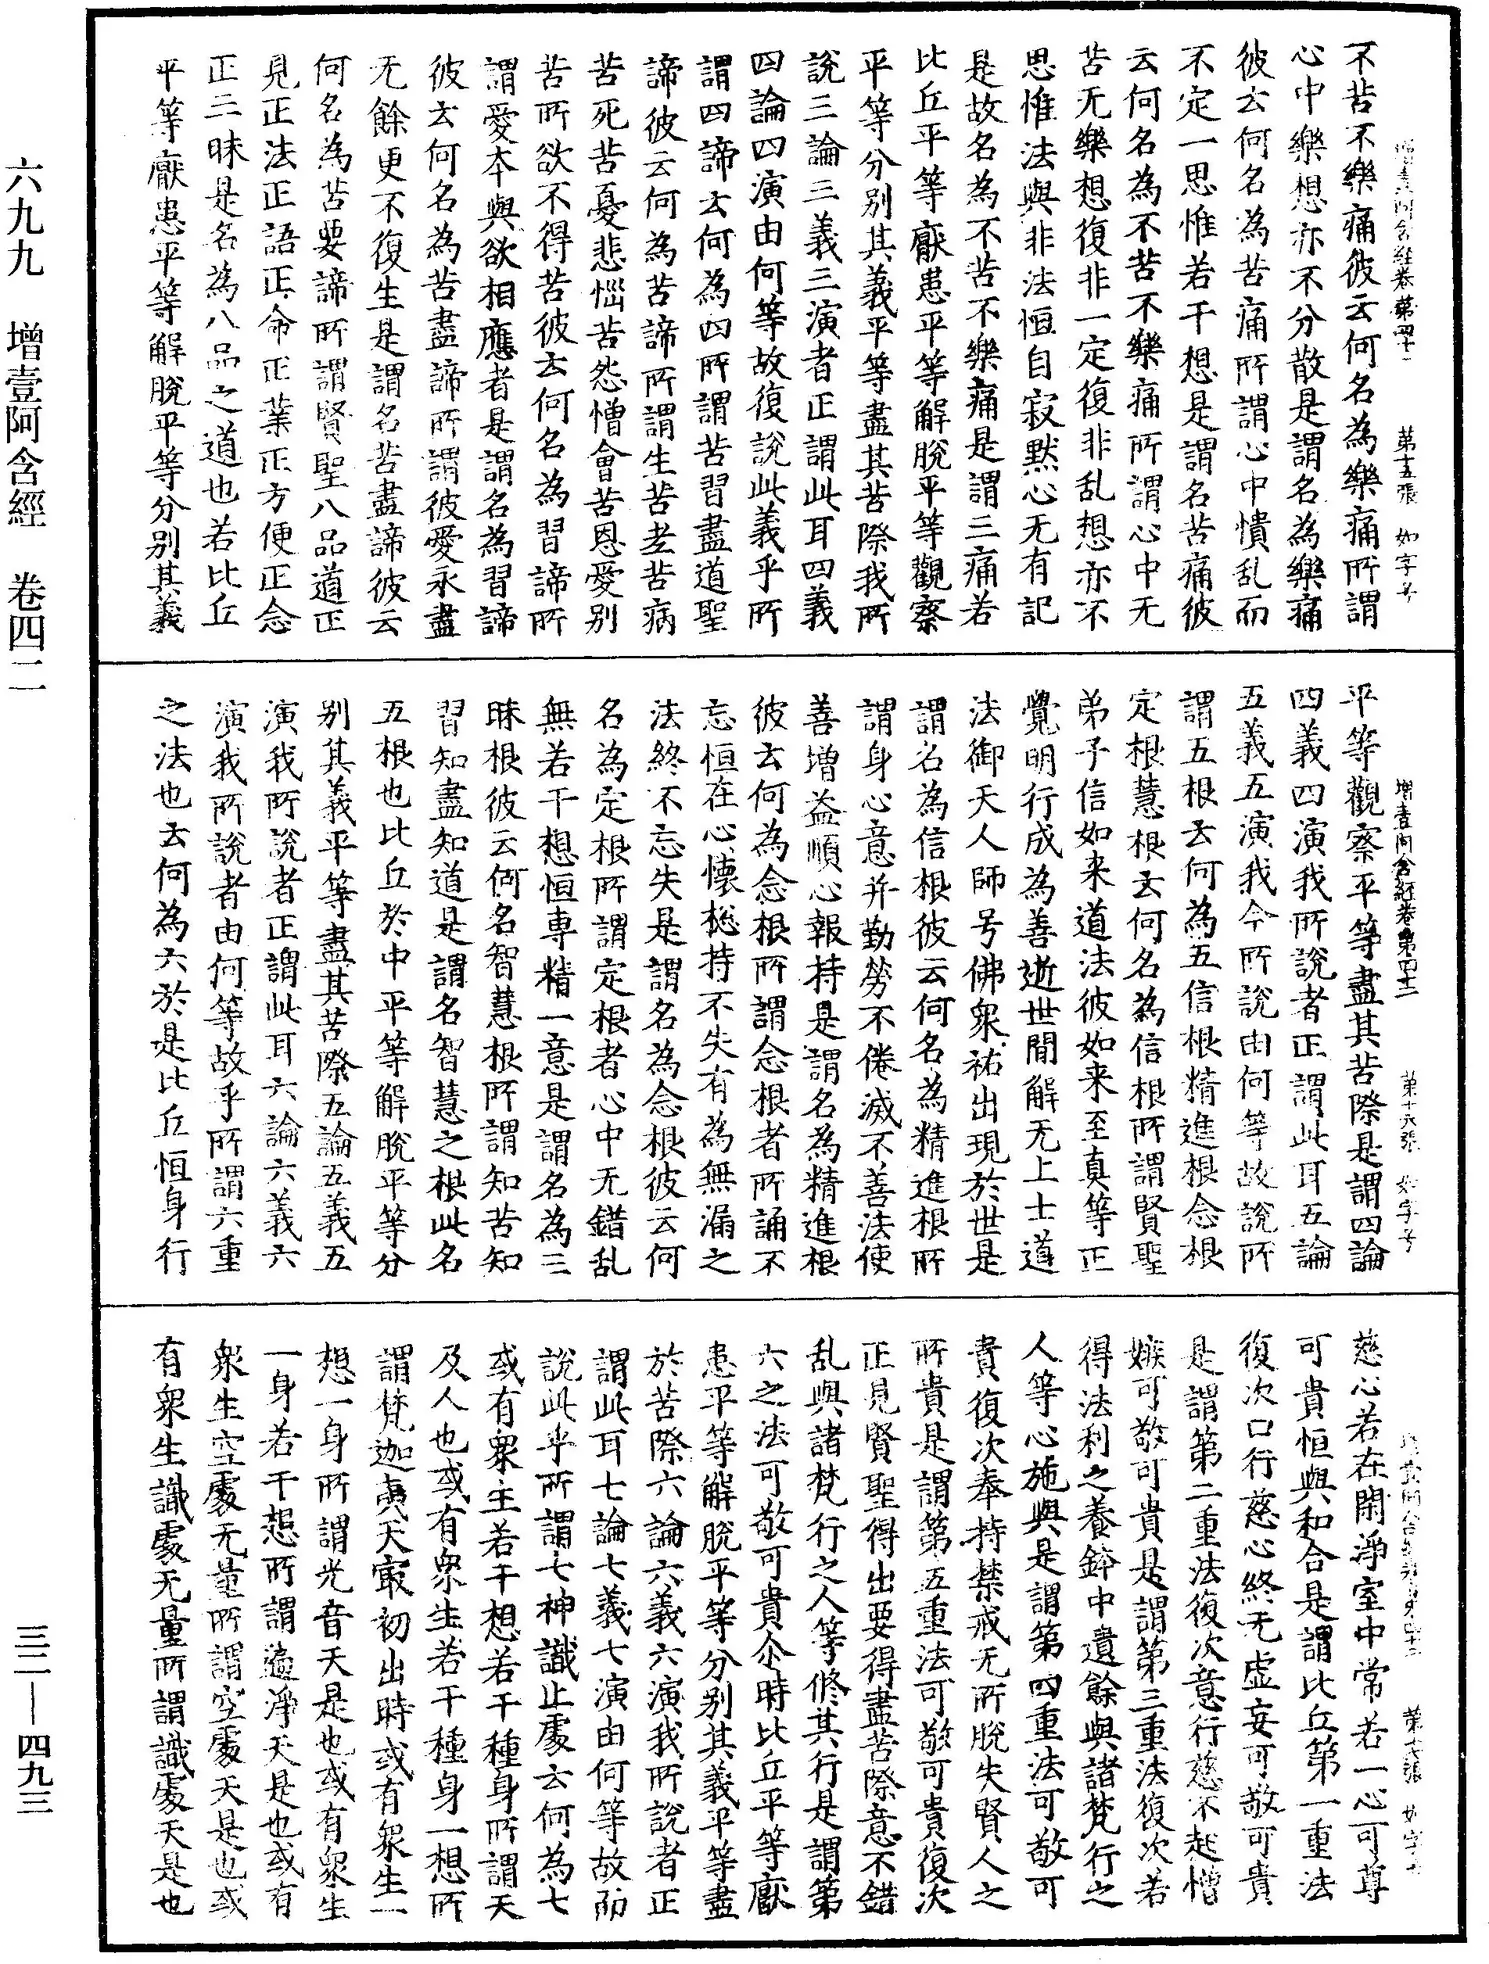 六九九　增壹阿含經　卷四二
三二—四九三
不苦不樂痛彼云何名為樂痛所謂
心中樂想亦不分散是謂名為樂痛
彼云何名為苦痛所謂心中憒乱而
不定一思惟若干想是謂名苦痛彼
云何名為不苦不樂痛所謂心中无
苦无樂想復非一定復非乱想亦不
思惟法與非法恒自寂默心无有記
是故名為不苦不樂痛是謂三痛若
比丘平等厭患平等解脫平等觀察
平等分别其義平等盡其苦際我所
說三論三義三演者正謂此耳四義
四論四演由何等故復說此義乎所
謂四諦云何為四所謂苦習盡道聖
諦彼云何為苦諦所謂生苦老苦病
苦死苦憂悲惱苦怨憎會苦恩愛别
苦所欲不得苦彼云何名為習諦所
謂愛本與欲相應者是謂名為習諦
彼云何名為苦盡諦所謂彼愛永盡
无餘更不復生是謂名苦盡諦彼云
何名為苦要諦所謂賢聖八品道正
見正法正語正命正業正方便正念
正三昧是名為八品之道也若比丘
平等厭患平等解脫平等分别其義
增壹阿含經卷第四十二　第十六張　如字号
平等觀察平等盡其苦際是謂四論
四義四演我所說者正謂此耳五論
五義五演我今所說由何等故說所
謂五根云何為五信根精進根念根
定根慧根云何名為信根所謂賢聖
弟子信如来道法彼如来至真等正
覺明行成為善逝世間解无上士道
法御天人師号佛衆祐出現於世是
謂名為信根彼云何名為精進根所
謂身心意并勤勞不倦滅不善法使
善增益順心報持是謂名為精進根
彼云何為念根所謂念根者所誦不
忘恒在心懷捴持不失有為無漏之
法終不忘失是謂名為念根彼云何
名為定根所謂定根者心中无錯乱
無若干想恒專精一意是謂名為三
昧根彼云何名智慧根所謂知苦知
習知盡知道是謂名智慧之根此名
五根也比丘於中平等解脫平等分
别其義平等盡其苦際五論五義五
演我所說者正謂此耳六論六義六
演我所說者由何等故乎所謂六重
之法也云何為六於是比丘恒身行
慈心若在閑淨室中常若一心可尊
可貴恒與和合是謂比丘第一重法
復次口行慈心終无虛妄可敬可貴
是謂第二重法復次意行慈不起憎
嫉可敬可貴是謂第三重法復次若
得法利之養鉢中遺餘與諸梵行之
人等心施與是謂第四重法可敬可
貴復次奉持禁戒无所脫失賢人之
所貴是謂第五重法可敬可貴復次
正見賢聖得出要得盡苦際意不錯
乱與諸梵行之人等修其行是謂第
六之法可敬可貴尒時比丘平等厭
患平等解脫平等分别其義平等盡
於苦際六論六義六演我所說者正
謂此耳七論七義七演由何等故而
說此乎所謂七神識止處云何為七
或有衆生若干想若干種身所謂天
及人也或有衆生若干種身一想所
謂梵迦夷天㝡初出時或有衆生一
想一身所謂光音天是也或有衆生
一身若干想所謂遍淨天是也或有
衆生空處无量所謂空處天是也或
有衆生識處无量所謂識處天是也